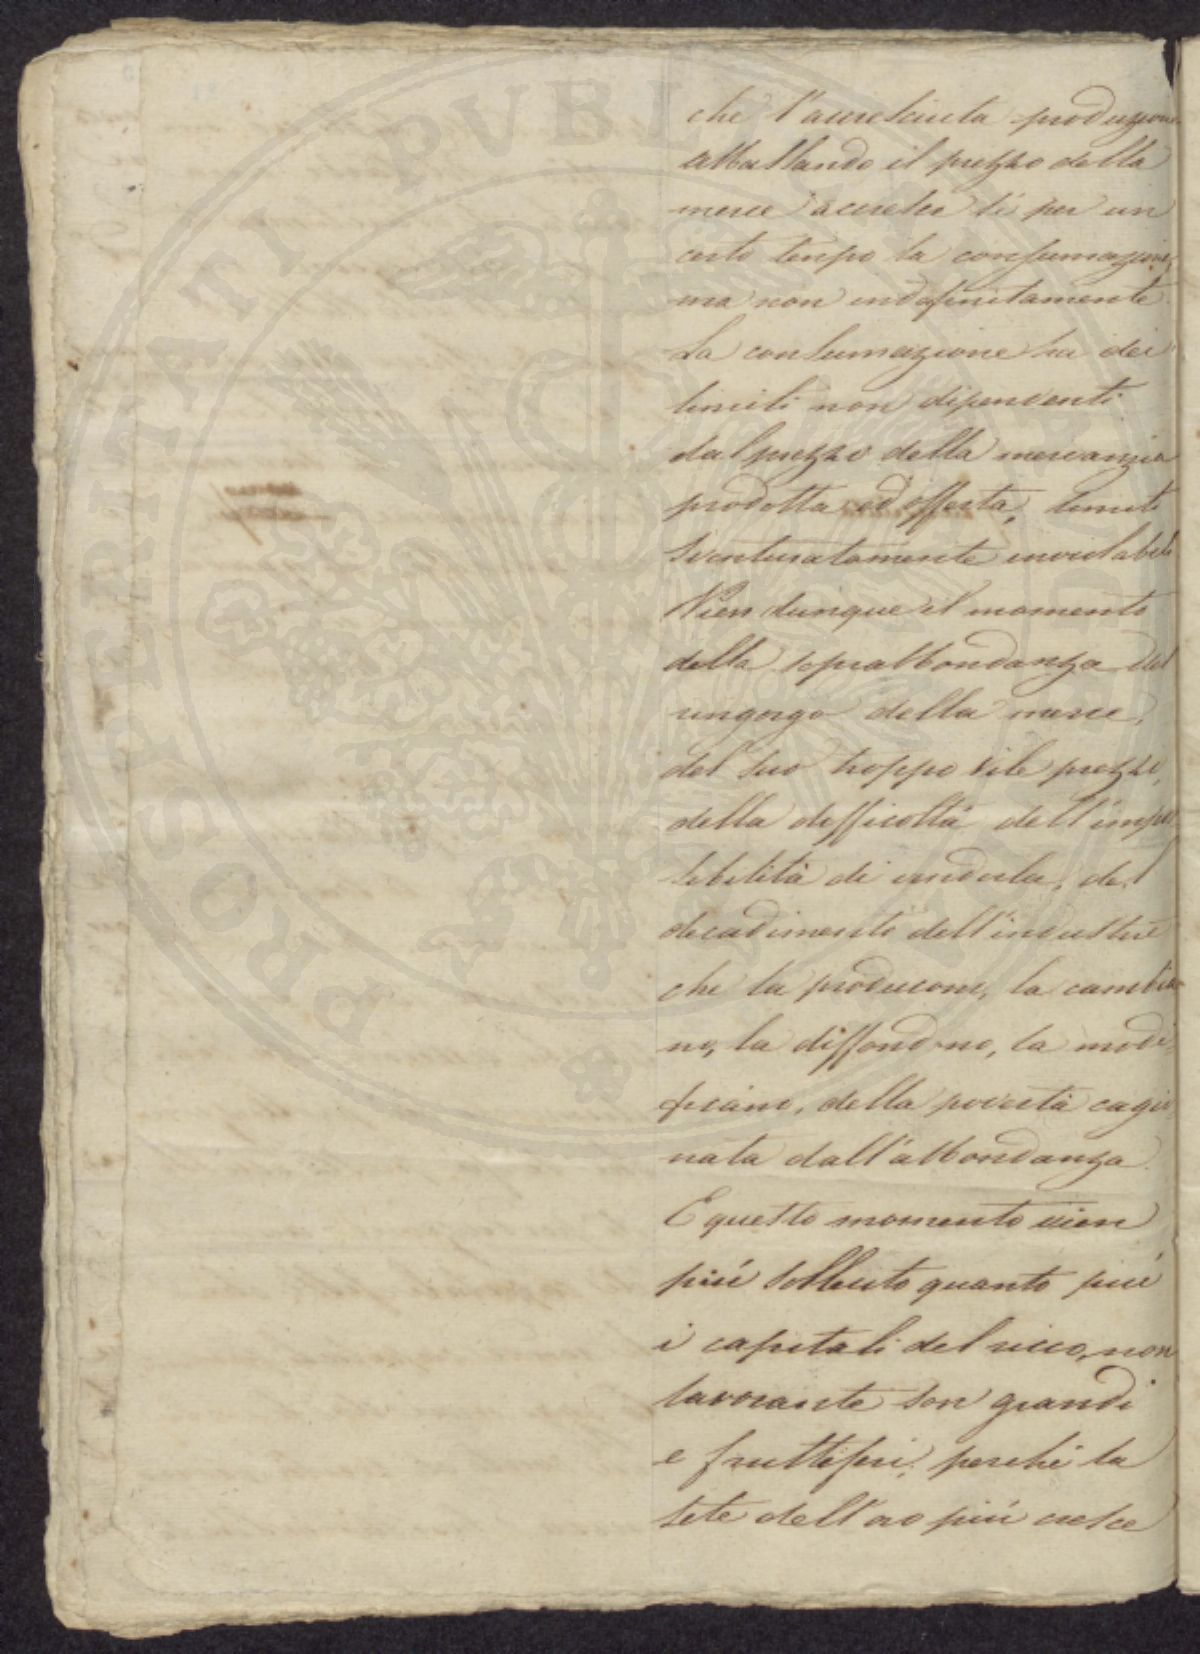 che l'accresciuta produzione
abbassando il prezzo della
merce accresce sì per un
certo tempo la consumazione,
ma non indefinitamente.
La consumazione ha dei
limiti non dipendenti
dal prezzo della mercanzia
prodotta ed offerta, limiti
sventuratamente inviolabili
Vien dunque il momento
della soprabbondanza del
ringorgo della merce,
del suo troppo vile prezzo,
della difficoltà dell'impos
sibilità di venderla, del
decadimento dell'industrie
che la producono, la cambia
no, la diffondono, la modi
ficano, della povertà cagio
nata dall'abbondanza.
E questo momento vien
più sollecito quanto più
i capitali del ricco, non
lavorante son grandi
e fruttiferi, perché la
sete dell'oro più cresce
PROSPERITATI PVBLICAE